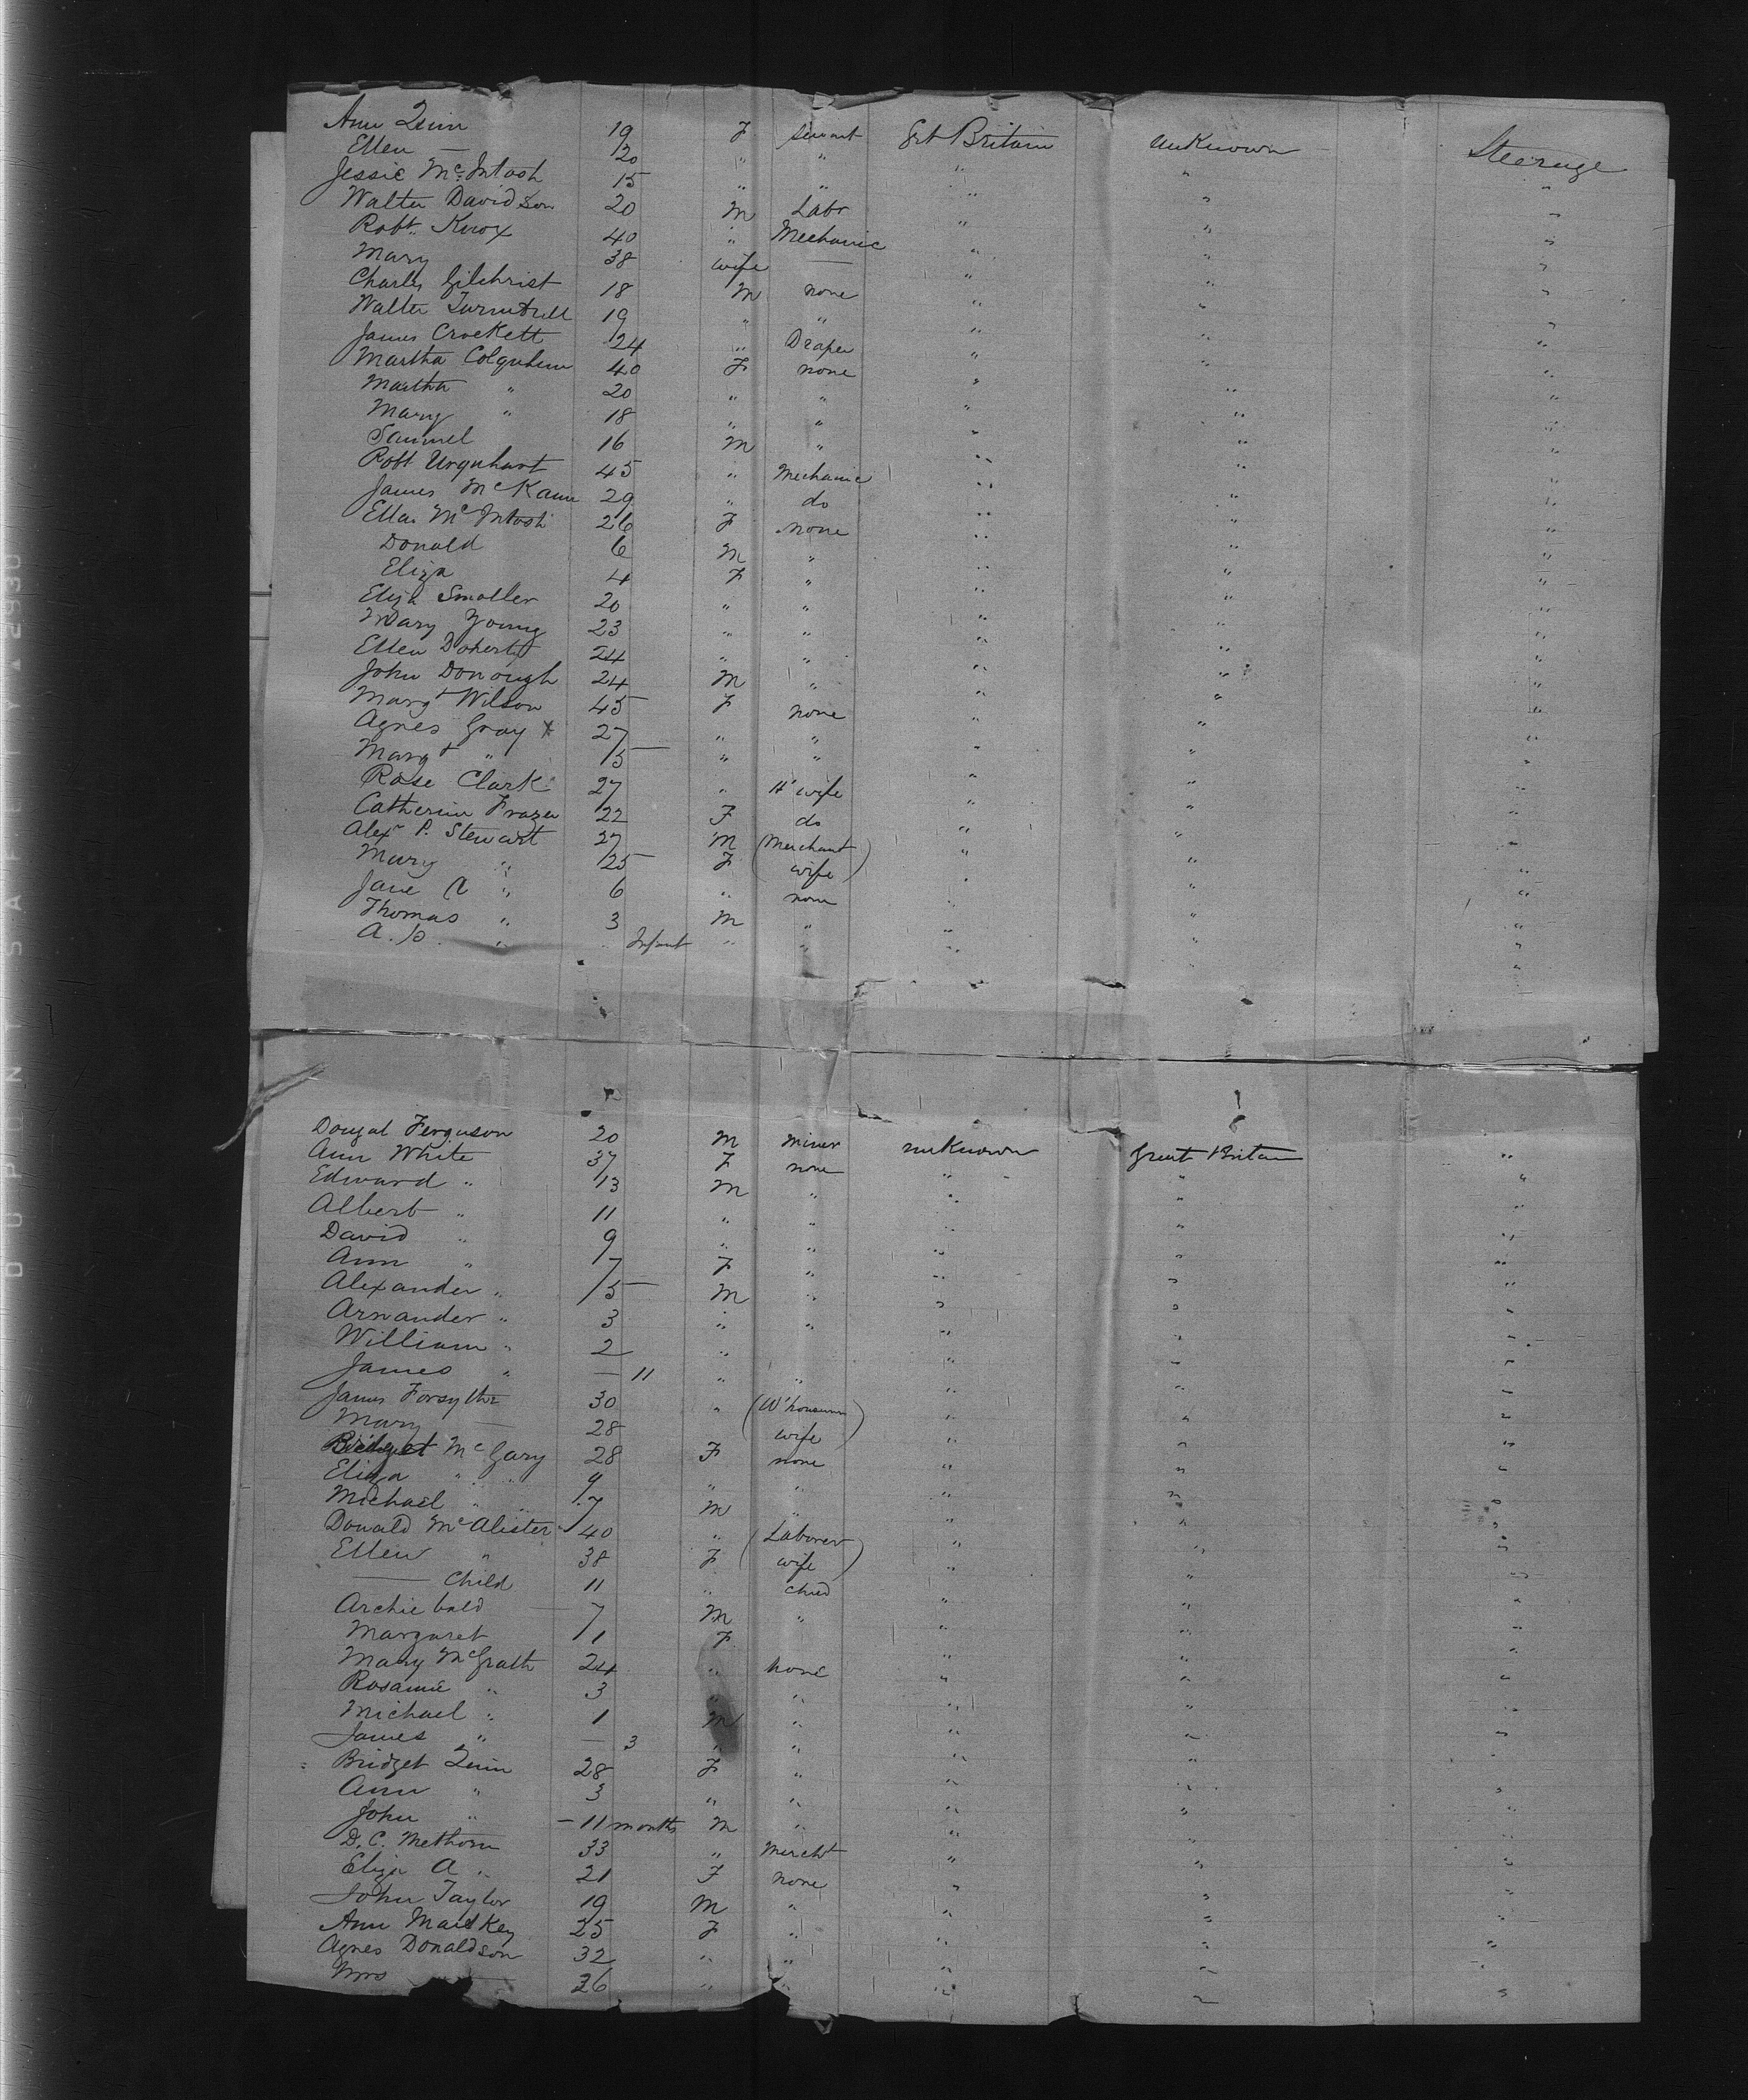 Ann Quinn 19 F Servant Grt Britain Unknown Steerage
Ellen — 20 " " " " "
Jessie McIntosh 15 " " " " "
Walter Davidson 20 M Labr " " "
Robt. Knox 40 " Mechanic " " "
Mary 38 wife — " " "
Charles Gilchrist 18 M none " " "
Walter Turnbull 19 " " " " "
James Crockett 24 " Draper " " "
Martha Colquhoun 40 F none " " "
Martha " 20 " " " " "
Mary " 18 " " " " "
Samuel 16 M " " " "
Robt Urquhart 45 " Mechanic " " "
James McKann 29 " do " " "
Ellen McIntosh 26 F none " " "
Donald 6 M " " " "
Eliza 4 F " " " "
Eliza Smaller 20 " " " " "
Mary Young 23 " " " " "
Ellen Doherty 24 " " " " "
John Donough 24 M " " " "
Margt Wilson 45 F none " " "
Agnes Gray x 27 " " " " "
Margt " 5 " " " " "
Rose Clark 27 " H'wife " " "
Catherine Frazer 22 F do " " "
Alexr P. Stewart 27 M (Merchant) " " "
Mary " 25 F (wife) " " "
Jane A " 6 " none " " "
Thomas " 3 M " " " "
A. P. " Infant " " " " "
Dougal Ferguson 20 M Miner unKnown Great Britain "
Ann White 37 F none " " "
Edward " 13 M " " " "
Albert " 11 " " " " "
David " 9 " " " " "
Ann " 7 F " " " "
Alexander " 5 M " " " "
Arnander " 3 " " " " "
William " 2 " " " "
James " — 11 " " " " "
James Forsythe 30 " (W'houseman) " " "
Mary — 28 wife) " " "
Bridget McGary 28 F none " " "
Eliza " " 9 " " " " "
Michael " " 7 M " " " "
Donald McAlister 40 " (Laborer) " " "
Ellen " 38 F (wife) " " "
— Child 11 " child " " "
Archie bald — 7 M " " " "
Margaret 1 F " " "
Mary McGrath 24 " none " " "
Rosanna " 3 " " " " "
Michael " 1 M " " " "
James " — 3 " " " " "
Bridget Quinn 28 F " " " "
Ann " 3 " " " " "
John " — 11 months M " " " "
D. C. Methorn 33 " Mercht " " "
Eliza A " 21 F none " " "
John Taylor 19 M " " " "
Ann 25 F " " " "
Agnes Donaldson 32 " " " " "
Mrs — 26 " " " "